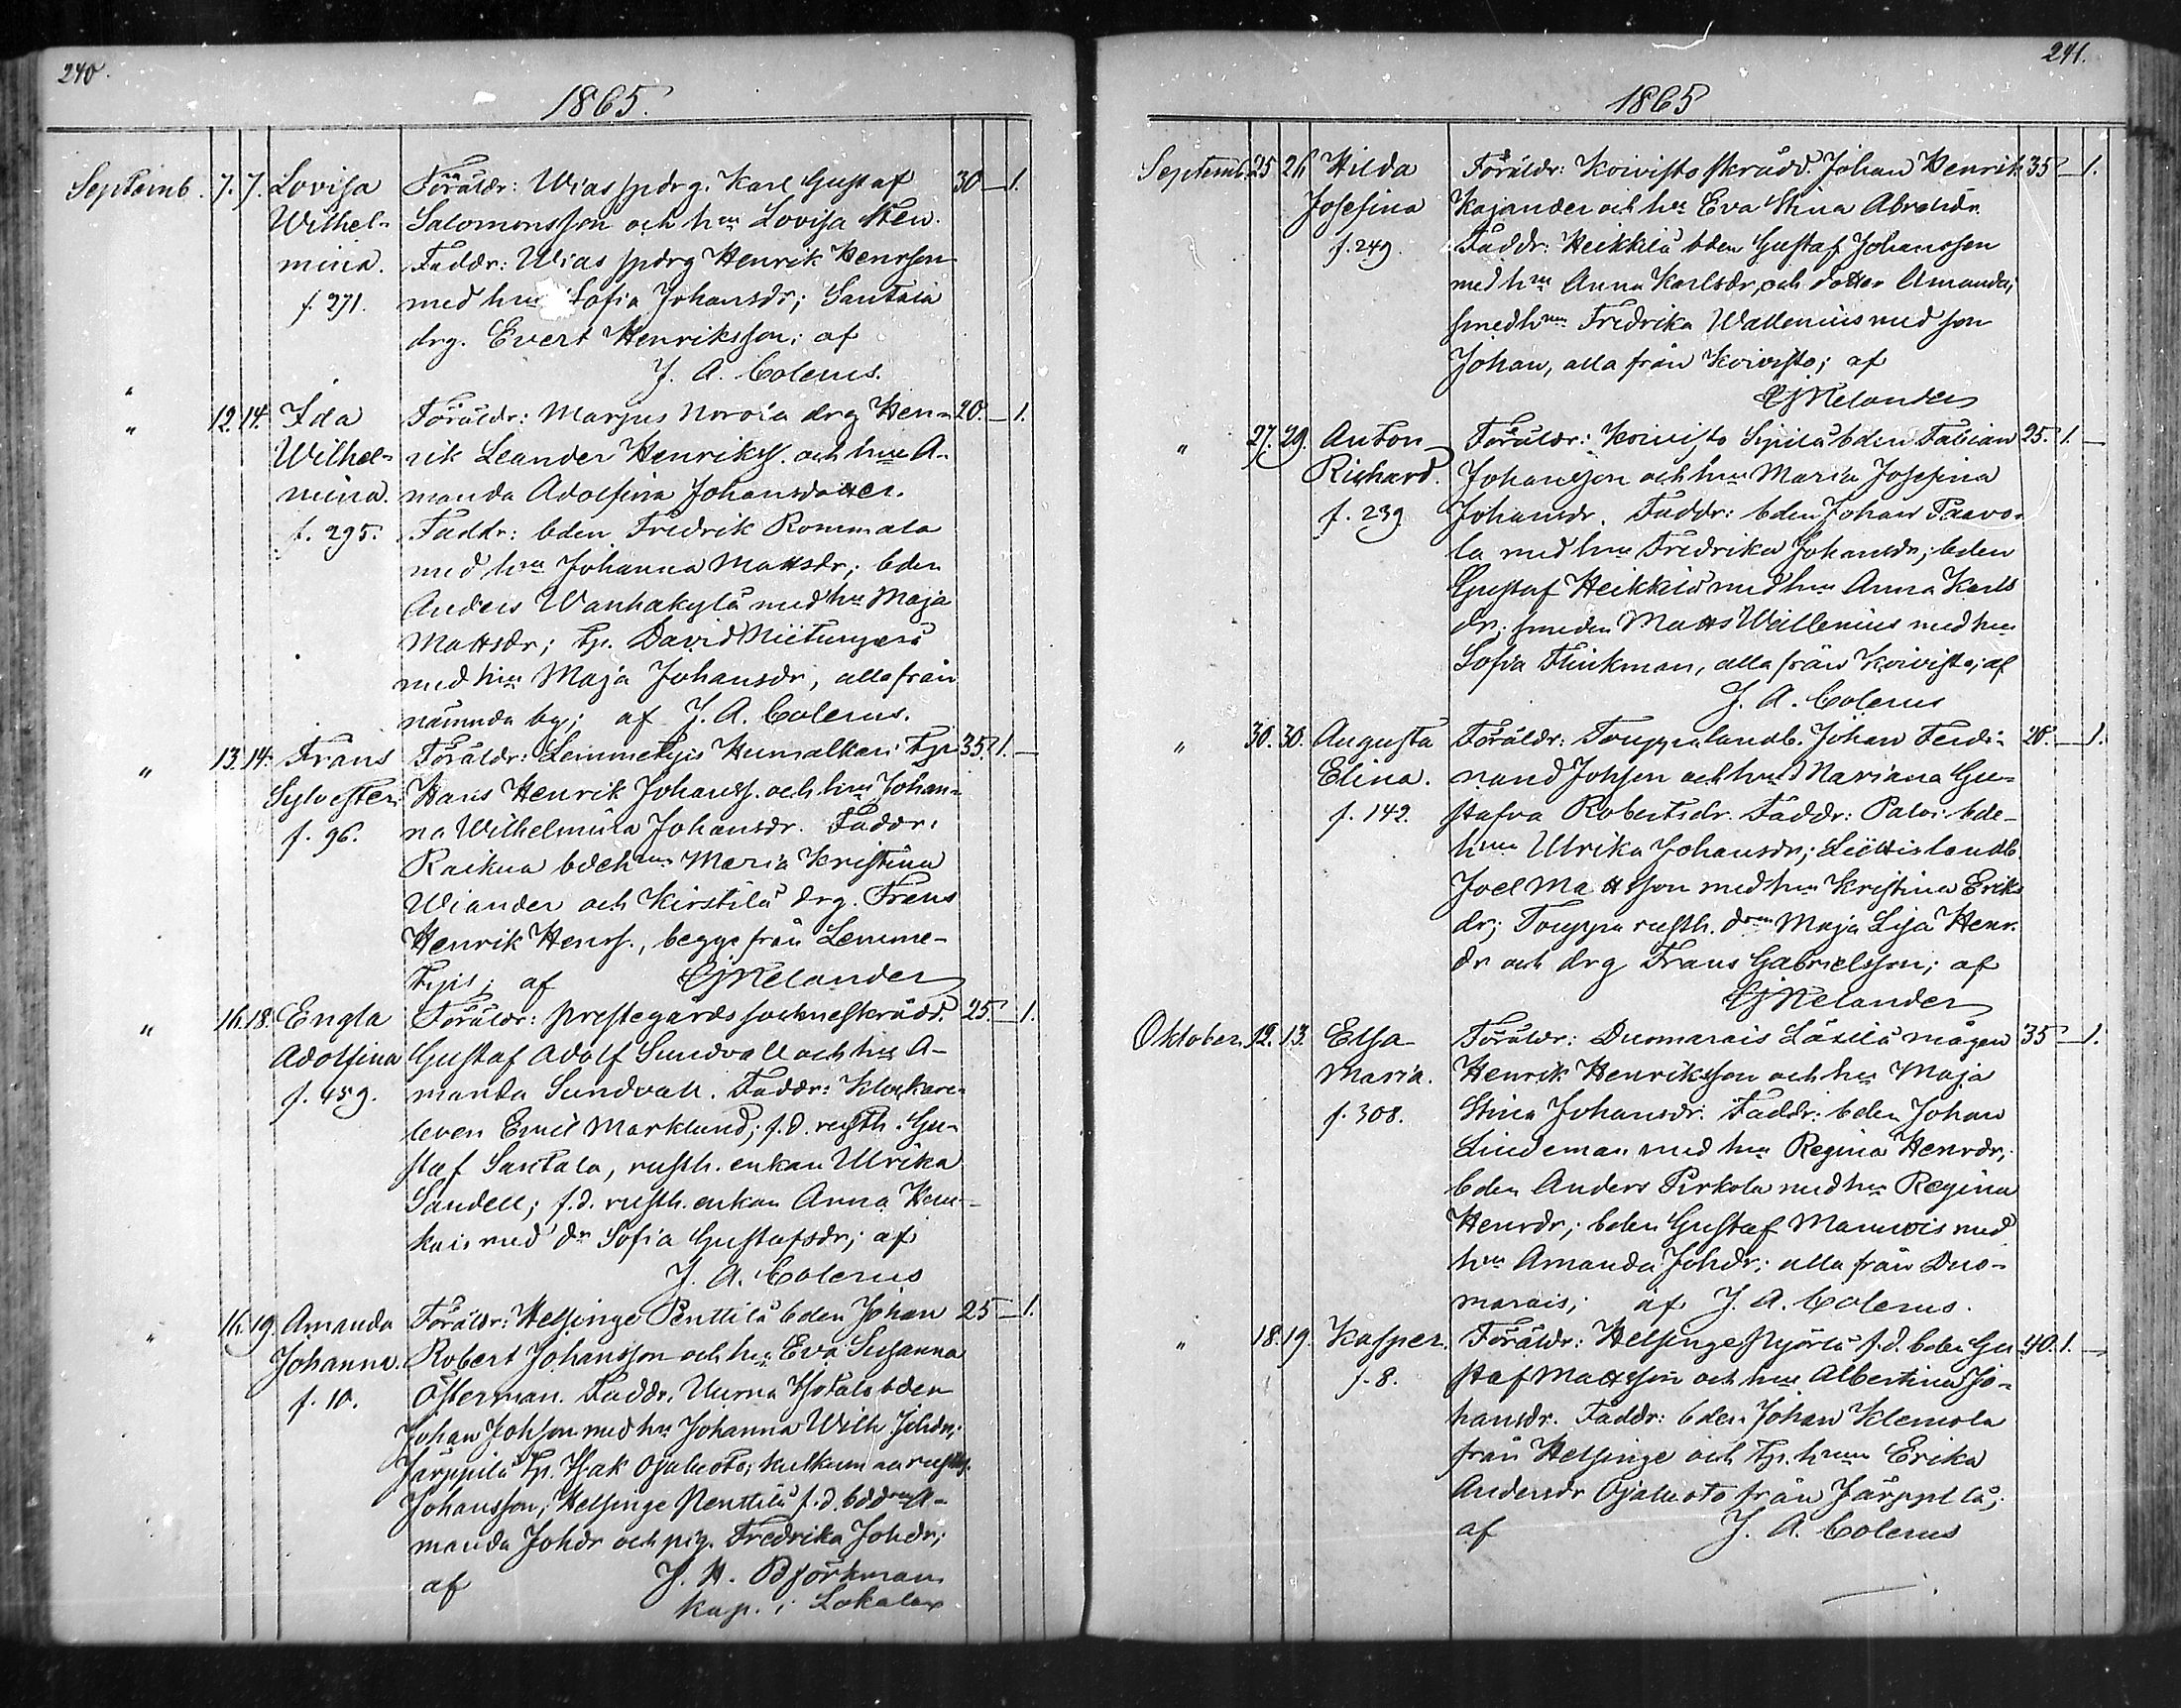 240.
1865.
Septemb. 7. 7. Lovisa Föräldr: Wias spdrg. Karl Gustaf 30 — 1.
Wilhel- Salomonsson och hu Lovisa Sten.
mina. Faddr: Wias spdrg Henrik Henrsson
f. 271. med hu Sofia Johansdr; Santala
drg. Evert Henriksson; af
J. A. Colerus.
" 12. 14. Ida Föräldr: Marjus drg Hen- 20. — 1.
Wilhel- rik Leander Henrikss. och hu A-
mina. manda Adolfina Johansdotter.
f. 295. Faddr: bden Fredrik Rommala
med hu Johanna Mattsdr; bden
Anders Wanhakylä med hu Maja
Mattsdr; tp. David
med hu Maja Johansdr, alla från
nämnda by; af J. A. Colerus.
" 13. 14. Frans Föräldr: Lemmetyis Humalkari tp 35. 1. —
Sylvester. Hans Henrik Johanss. och hu Johan-
f. 96. na Wilhelmina Johansdr. Faddr:
Raikua bdehu Maria Kristina
Wiander och Kirstilä drg. Frans
Henrik Henrs., begge från Lemme-
tyis; af CJMelander
" 16. 18. Engla Föräldr: prestegårds sockneskrädd. 25. — 1.
Adolfina Gustaf Adolf Sundvall och hu A-
f. 459. manda Sundvall. Faddr: Klockare-
leven Emil Marklund; f.d. rusth. Gu-
staf Santala, rusth. enkan Ulrika
Sandell; f.d. rusth. enkan Anna
med dr Sofia Gustafsdr; af
J. A. Colerus
" 16. 19. Amanda Föräldr: Helsinge Penttilä bden Johan 25 — 1.
Johanna. Robert Johansson och hu Eva Susanna
f. 10. Österman. Faddr. bden
Johan Johsson med hu Johanna Wilh. Johdr;
Järppilä tp. Isak Ojaluoto;
Johansson; Helsinge Penttilä f.d. A-
manda Johdr och pig. Fredrika Johdr;
af J. H. Björkman
kap. i Lokalax
241.
1865
Septemb. 25 26 Hilda Föräldr: Koivisto skrädd. Johan Henrik 35 — 1.
Josefina Kajander och hu Eva Stina Abrahdr.
f. 249. Faddr: Heikkilä bden Gustaf Johansson
med hu Anna Karlsdr, och dotter Amanda;
smedhun Fredrika Wallenius med son
Johan, alla från Koivisto; af
CJMelander
" 27. 29. Anton Föräldr: Koivisto Sipilä bden Fabian 25. 1. —
Richard. Johansson och hu Maria Josefina
f. 239 Johansdr. Faddr: bden Johan Paavo-
la med hu Fredrika Johansdr; bden
Gustaf Heikkilä med hu Anna Karls
dr; smeden Matts Wallenius med hu
Sofia Flinkman, alla från Koivisto; af
J. A. Colerus
" 30. 30. Augusta Föräldr: Touppa landb. Johan Ferdi- 20. — 1.
Elina. nand Johsson och hu Mariana Gu-
f. 142. stafva Robertsdr. Faddr: Paloi bde-
hun Ulrika Johansdr; landb.
Joel Mattsson med hu Kristina Eriks
dr; Touppa rusth. dren Maja Lisa Henr.
dr och drg Frans Gabrielsson; af
CJMelander
Oktober. 12. 13. Elsa Föräldr: mågen 35 — 1.
Maria. Henrik Henriksson och hu Maja
f. 308. Stina Johansdr. Faddr: bden Johan
Lindeman med hu Regina Henrdr;
bden Anders Pirkola med hu Regina
Henrdr; bden Gustaf med
hu Amanda Johdr; alla från
af J. A. Colerus.
" 18. 19. Kasper. Föräldr: Helsinge f.d. bden Gu- 40. 1. —
f. 8. staf Mattsson och hu Albertina Jo-
hansdr. Faddr: bden Johan Klemola
från Helsinge och tp. hun Erika
Andersdr Ojaluoto från Järppilä;
af J. A. Colerus